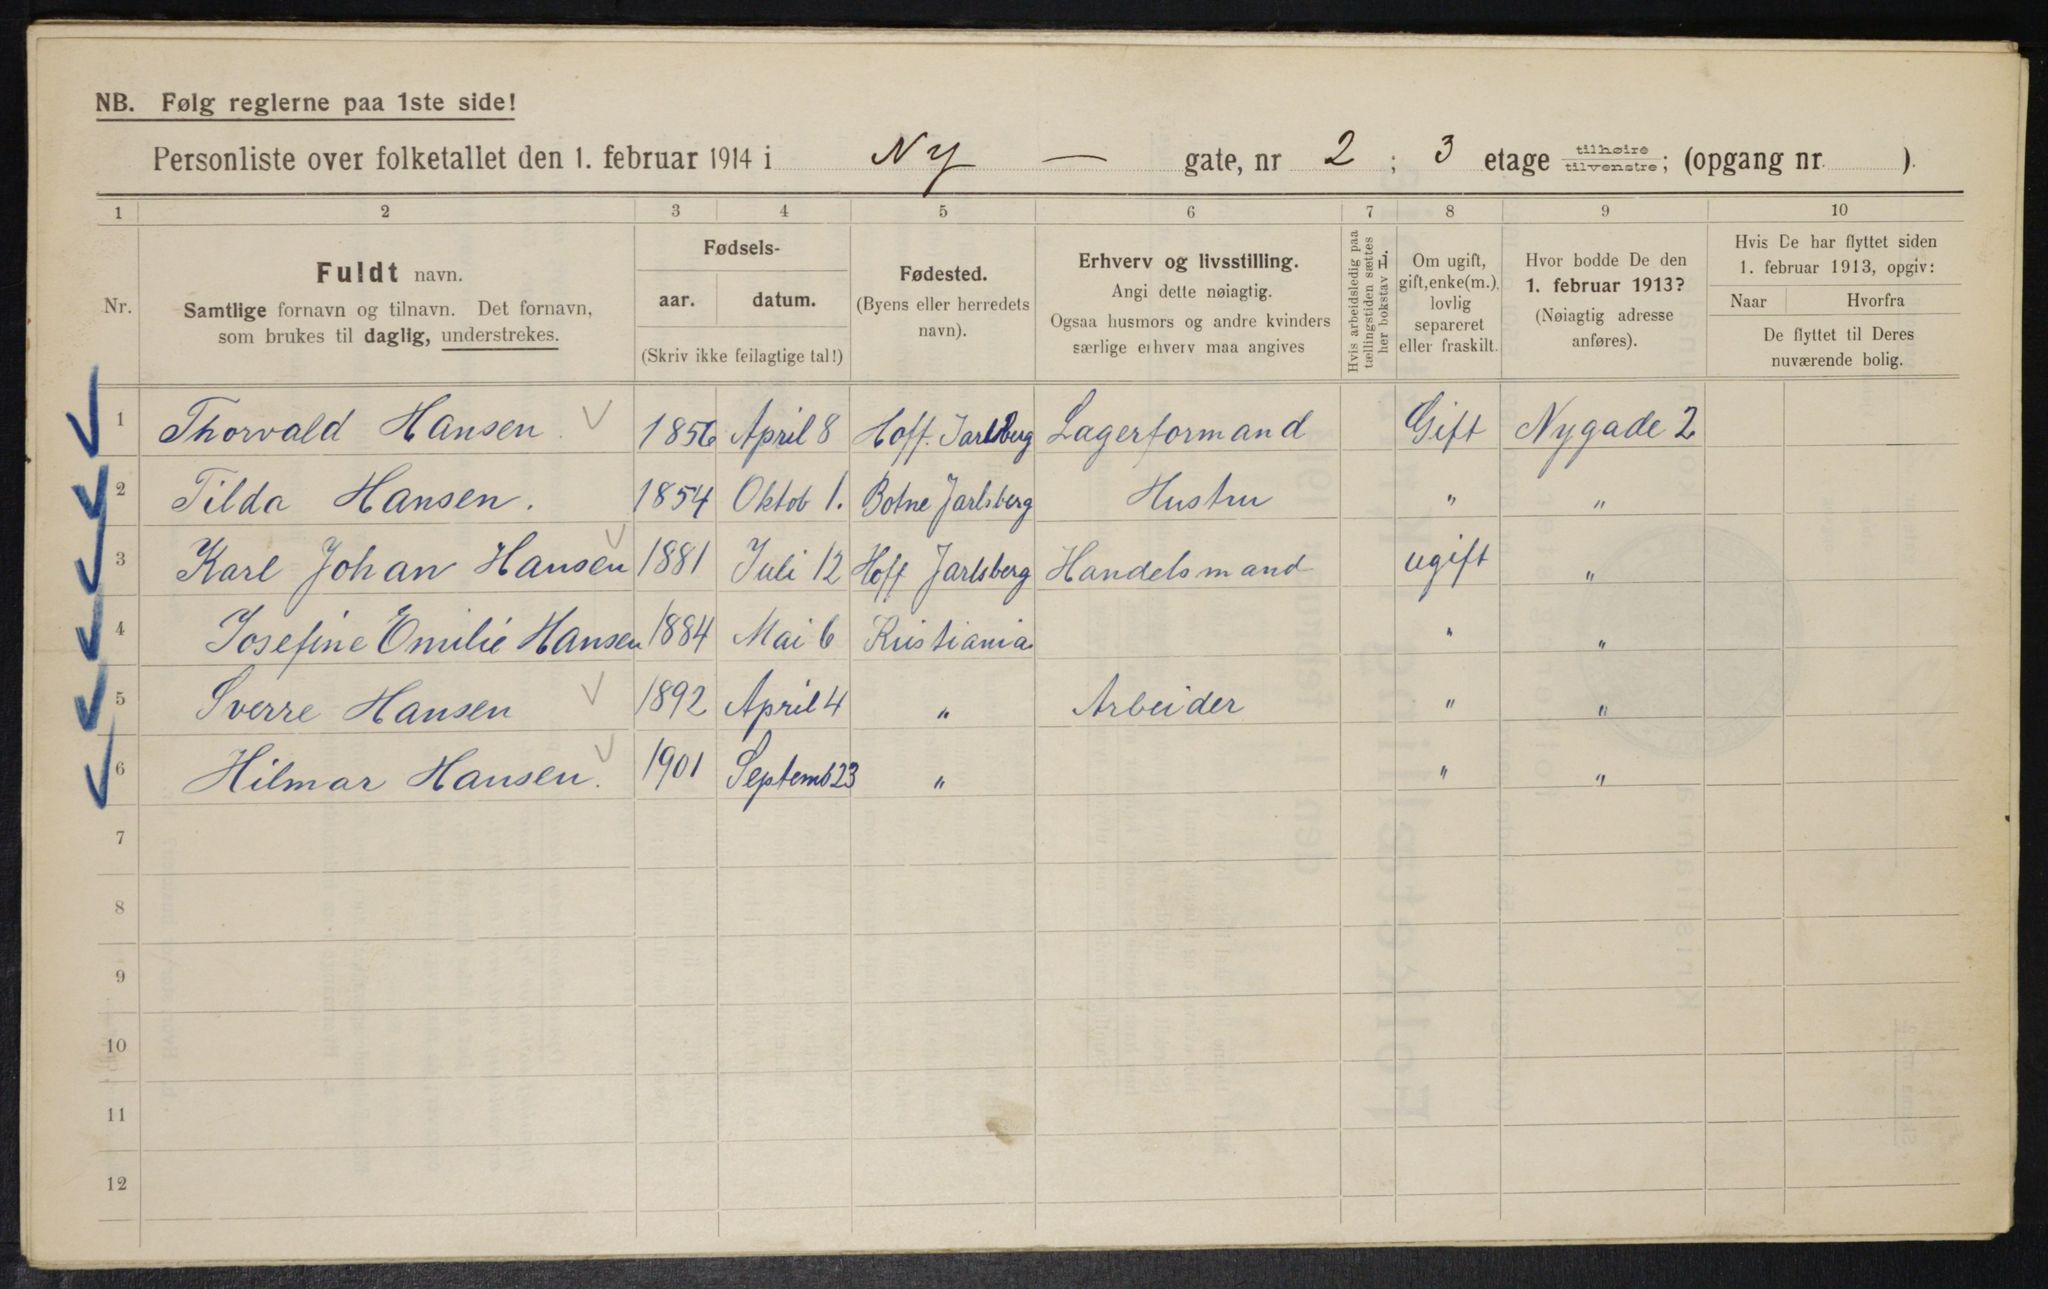 NB. Følg reglerne paa 1ste side!
Personliste over folketallet den 1. februar 1914 i Ny — gate, nr 2 ; 3 etage tilhøire tilvenstre; (opgang nr. ).
1 2 3 4 5 6 7 8 9 10
Nr.
Fuldt navn.
Samtlige fornavn og tilnavn. Det fornavn,
som brukes til daglig, understrekes.
Fødsels-
aar. datum.
(Skriv ikke feilagtige tal!)
Fødested.
(Byens eller herredets
navn).
Erhverv og livsstilling.
Angi dette nøiagtig.
Ogsaa husmors og andre kvinders
særlige erhverv maa angives
Hvis arbeidsledig paa
tællingstiden sættes
her bokstav l.
Om ugift,
gift, enke(m.),
lovlig
separeret
eller fraskilt.
Hvor bodde De den
1. februar 1913?
(Nøiagtig adresse
anføres).
Hvis De har flyttet siden
1. februar 1913, opgiv:
Naar Hvorfra
De flyttet til Deres
nuværende bolig.
1 Thorvald Hansen 1856 April 8 Hoff. Jarlsberg Lagerformand Gift Nygade 2
2 Tilda Hansen. 1854 Oktob 1. Botne Jarlsberg Hustru " "
3 Karl Johan Hansen 1881 Juli 12 Hoff Jarlsberg Handelsmand ugift "
4 Josefine Emilie Hansen 1884 Mai 6 Kristiania " "
5 Sverre Hansen 1892 April 4 " Arbeider " "
6 Hilmar Hansen. 1901 Septemb 23 " " "
7
8
9
10
11
12